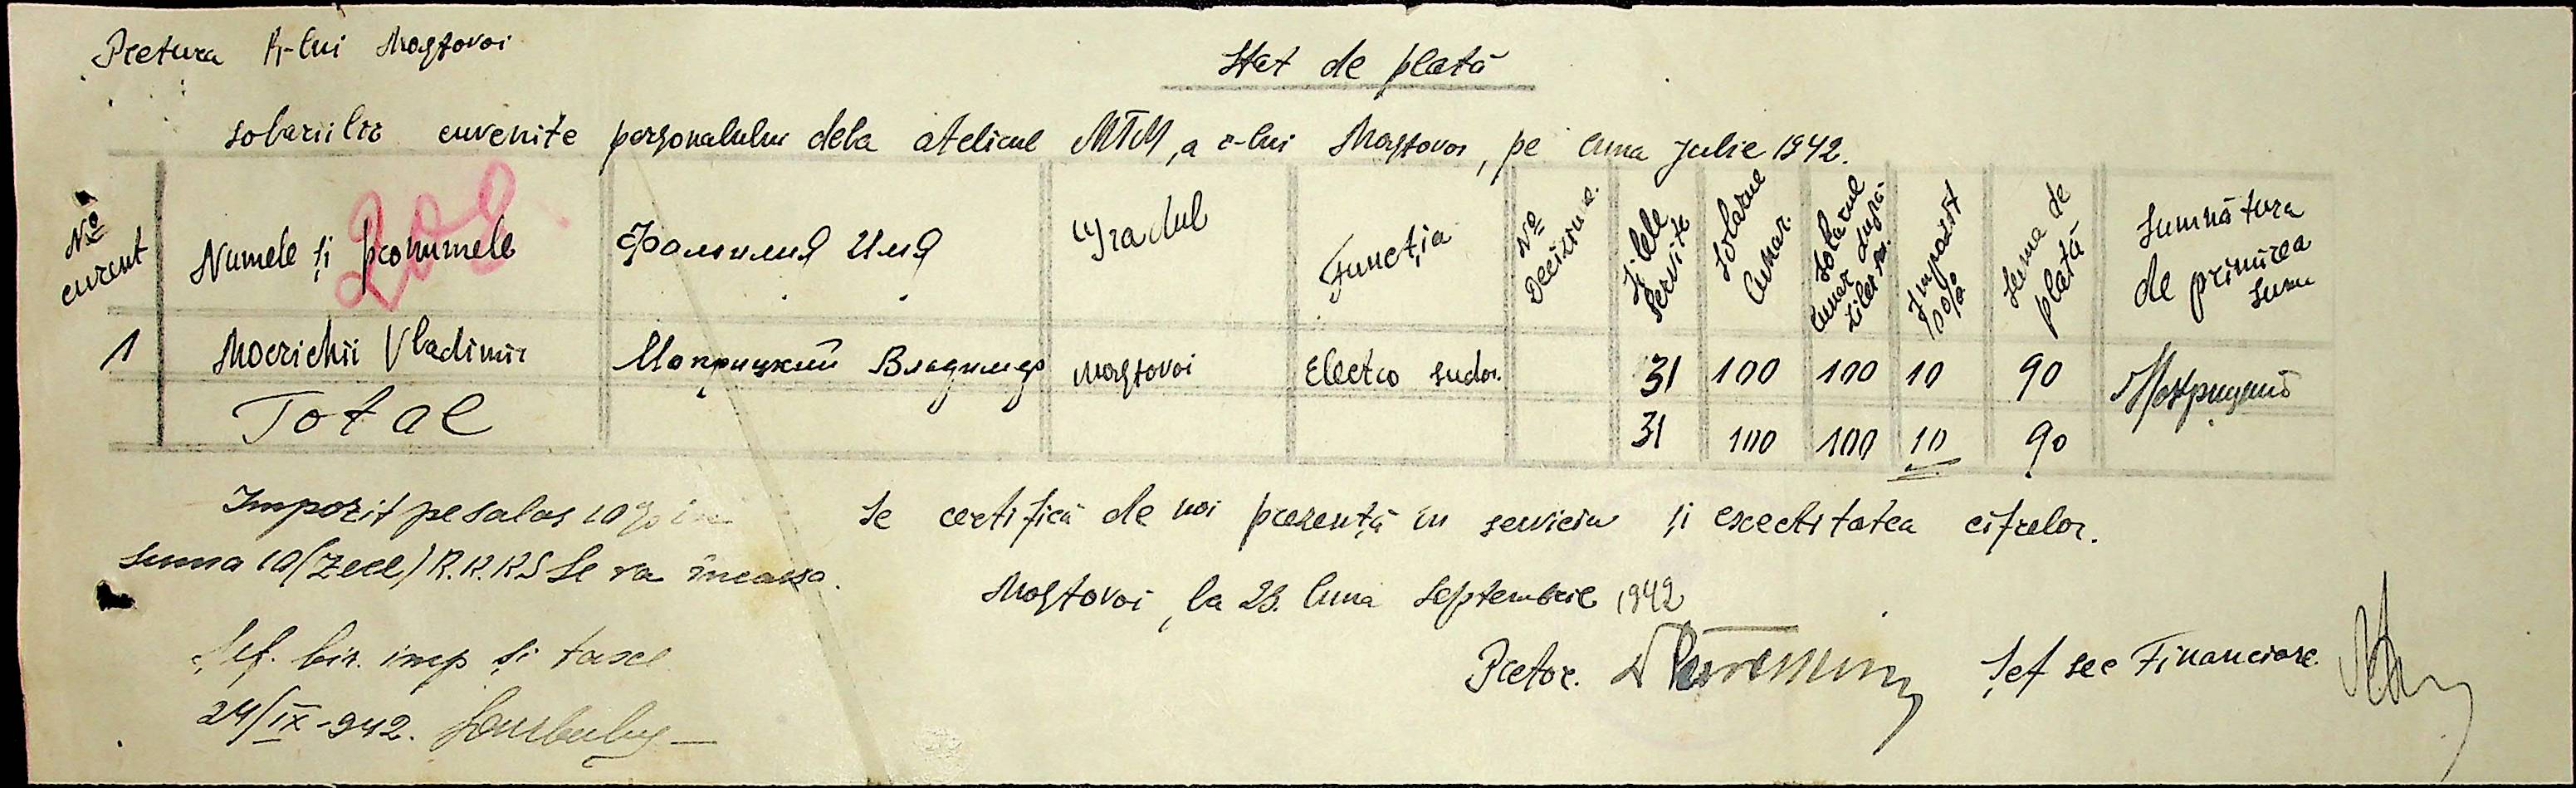 Pretura R-lui Mostovoi
Stat de plată
salariilor cuvenite personalului dela atelierul MTM, a r-lui Mostovoi, pe luna Julie 1942.
No curent
Numele și pronumele
Фамилия Имя
Gradul
Funcția
No Deciziune.
Zilele servite
Salariul lunar.
Salariul lunar după zile
Impozit 10%
Suma de plată
Semnătura de primirea sumei
209
1 Mocrichii Vladimir Мокрицкий Владимир Mostovoi Electro sudor. 31 100 100 10 90 Мокрицкий
Total 31 100 100 10 90
Impozit pe salar 10% în
suma 10 (zece) R.K.K.S se va încasa.
Șef. bir. imp și taxe
24/IX-942.
Se certifică de noi prezența în serviciu și exactitatea cifrelor.
Mostovoi, la 23. luna Septembrie 1942
Pretor. Șef sec Financiare.